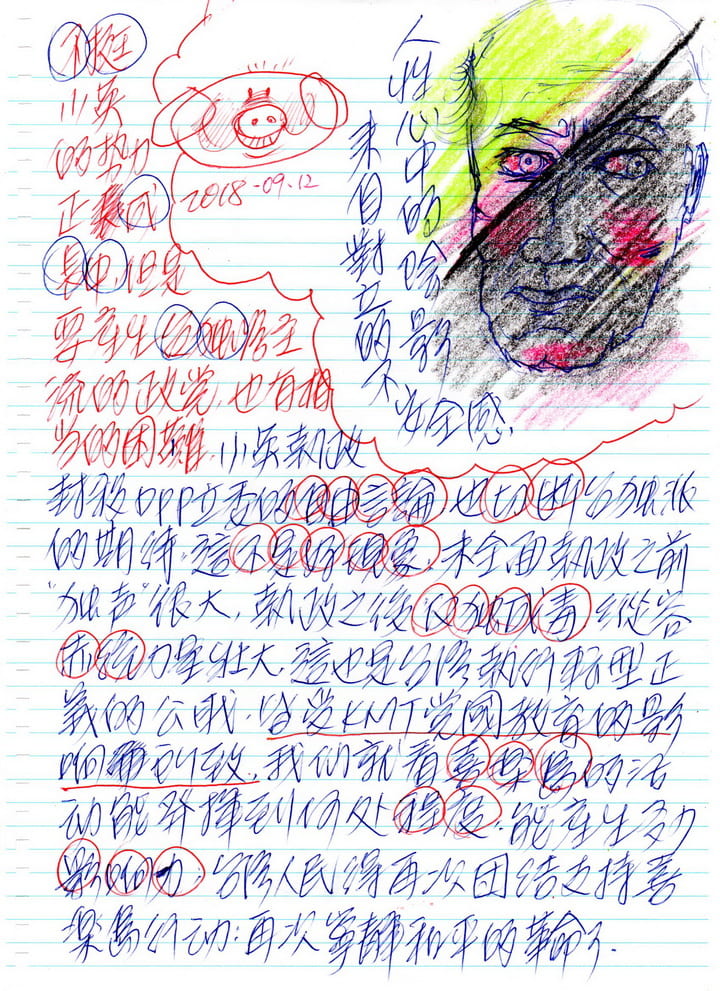 不挺
小英
的势力
正在成
長中,但是
要產生台独為主
流的政党,也有相
当的困難,小英執政
封殺DPP立委的自由言論,也切断台独派
的期待,這不是好現象,未全面執政之前
“独声”很大,執政之後仅独成毒,縱容
赤統力量壯大,這也是台灣執行転型正
義的公敵,皆受KMT党國教育的影
响所致,我們就看喜樂島的活
动能發揮到何处程度,能產生多力
影响力,台灣人民得再次团结支持喜
樂島行动:再次寧靜和平的革命了.
2018-09.12
人性心中的陰影
來自對立的不
安全感.